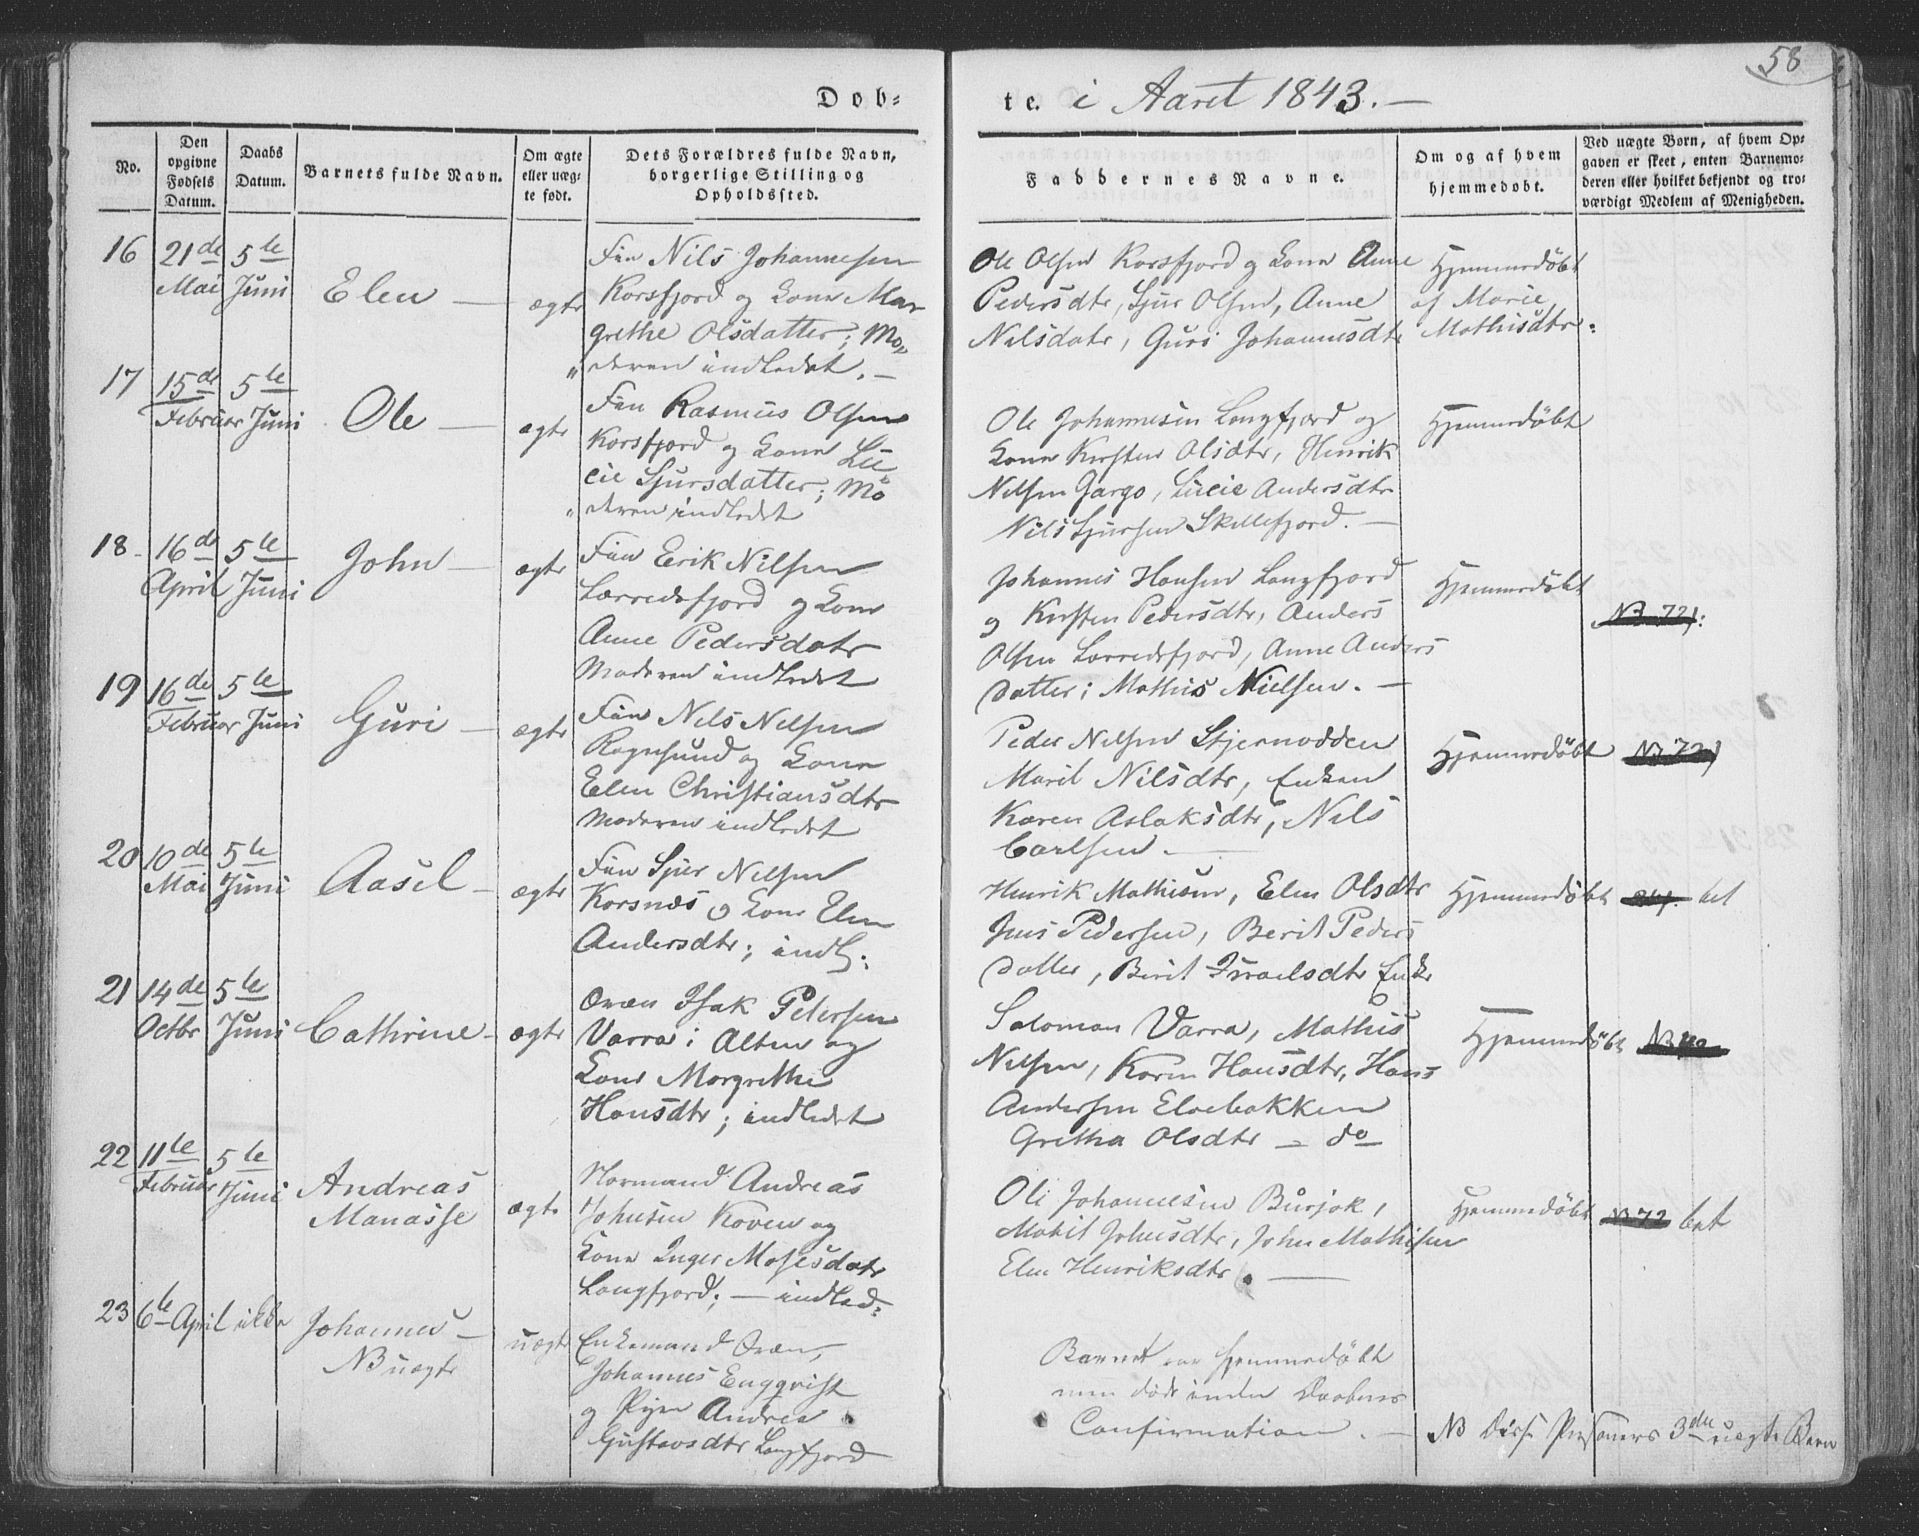 58
Døb-
te. i Aaret 1843. —
No.
Den opgivne Fødsels Datum.
Daabs Datum.
Barnets fulde Navn.
Om ægte eller uægte født.
Dets Forældres fulde Navn, borgerlige Stilling og Opholdssted.
Faddernes Navne.
Om og af hvem hjemmedøbt.
Ved uægte Børn, af hvem Opgaven er skeet, enten Barnemoderen eller hvilket bekjendt og troværdigt Medlem af Menigheden.
16
21de Mai
5te Juni
Elen —
ægte
Fin Nils Johannesen
Korsfjord og Kone Mar
grethe Olsdatter; Mo„
„deren indledet. —
Ole Olsen Korsfjord og Kone Anne
Pedersdtr, Sjur Olsen, Anne
Nilsdatr, Guri Johannesdtr
Hjemmedøbt
af Marie
Mathisdtr.
17
15de Februar
5te Juni
Ole —
ægte
Fin Rasmus Olsen
Korsfjord og Kone Lu
cie Sjursdatter; Mo
„deren indledet
Ole Johannesen Langfjord og
Kone Kirsten Olsdtr, Henrik
Nilsen Gargo, Lucie Andersdtr
Nils Sjursen Skillefjord. —
Hjemmedøbt
18
16de April
5te Juni
John —
ægte
Fin Eerik Nilsen
Lærredsfjord og Kone
Anne Pedersdatr
Moderen indledet
Johannes Hansen Langfjord
og Kirsten Pedersdtr, Anders
Olsen Lærredsfjord, Anne Anders
datter; Mathis Nielsen. —
Hjemmedøbt
NB 72
19
16de Februar
5te Juni
Guri —
ægte
Fin Nils Nilsen
Rognsund og Kone
Elen Christiansdtr
Moderen indledet
Peder Nilsen Stjernodden
Marit Nilsdtr, Enken
Karen Aslaksdtr, Nils
Carlsen. —
Hjemmedøbt
NB 72
20
10de Mai
5te Juni
Aasel —
ægte
Fin Sjur Nilsen
Korsnæs og Kone Elen
Andersdtr; indl:
Henrik Mathisen, Elen Olsdtr
Jens Pedersen, Berit Peders
datter, Berit Israelsdtr Enke
Hjemmedøbt
bet
21
14de Octbr
5te Juni
Cathrine —
ægte
Qvæn Isak Petersen
Varra i Alten og
Kone Margrethe
Hansdtr; indledet
Salomon Varra, Mathis
Nilsen, Karen Hansdtr, Hans
Andersen Elvebakken
Gretha Olsdtr — do
Hjemmedøbt
22
11te Februar
5te Juni
Andreas
Manasse
ægte
Normand Andreas
Johnsen Koven og
Kone Inger Mosesdatr
Langfjord; — indled:
Ole Johannesen Burjok,
Mabit Johnsdtr, John Mathisen
Elen Henriksdtr. —
Hjemmedøbt
NB 72 bet
23
6te April
ikke
Johannes —
NB uægte
uægte
Enkemand Qvæn,
Johannes Engqvist
og Pigen Andrea
Gustavsdtr Langfjord
Barnet var hjemmedøbt
men døde inden Daabens
Confirmation. —
NB Disse Personers 3die uægte Barn